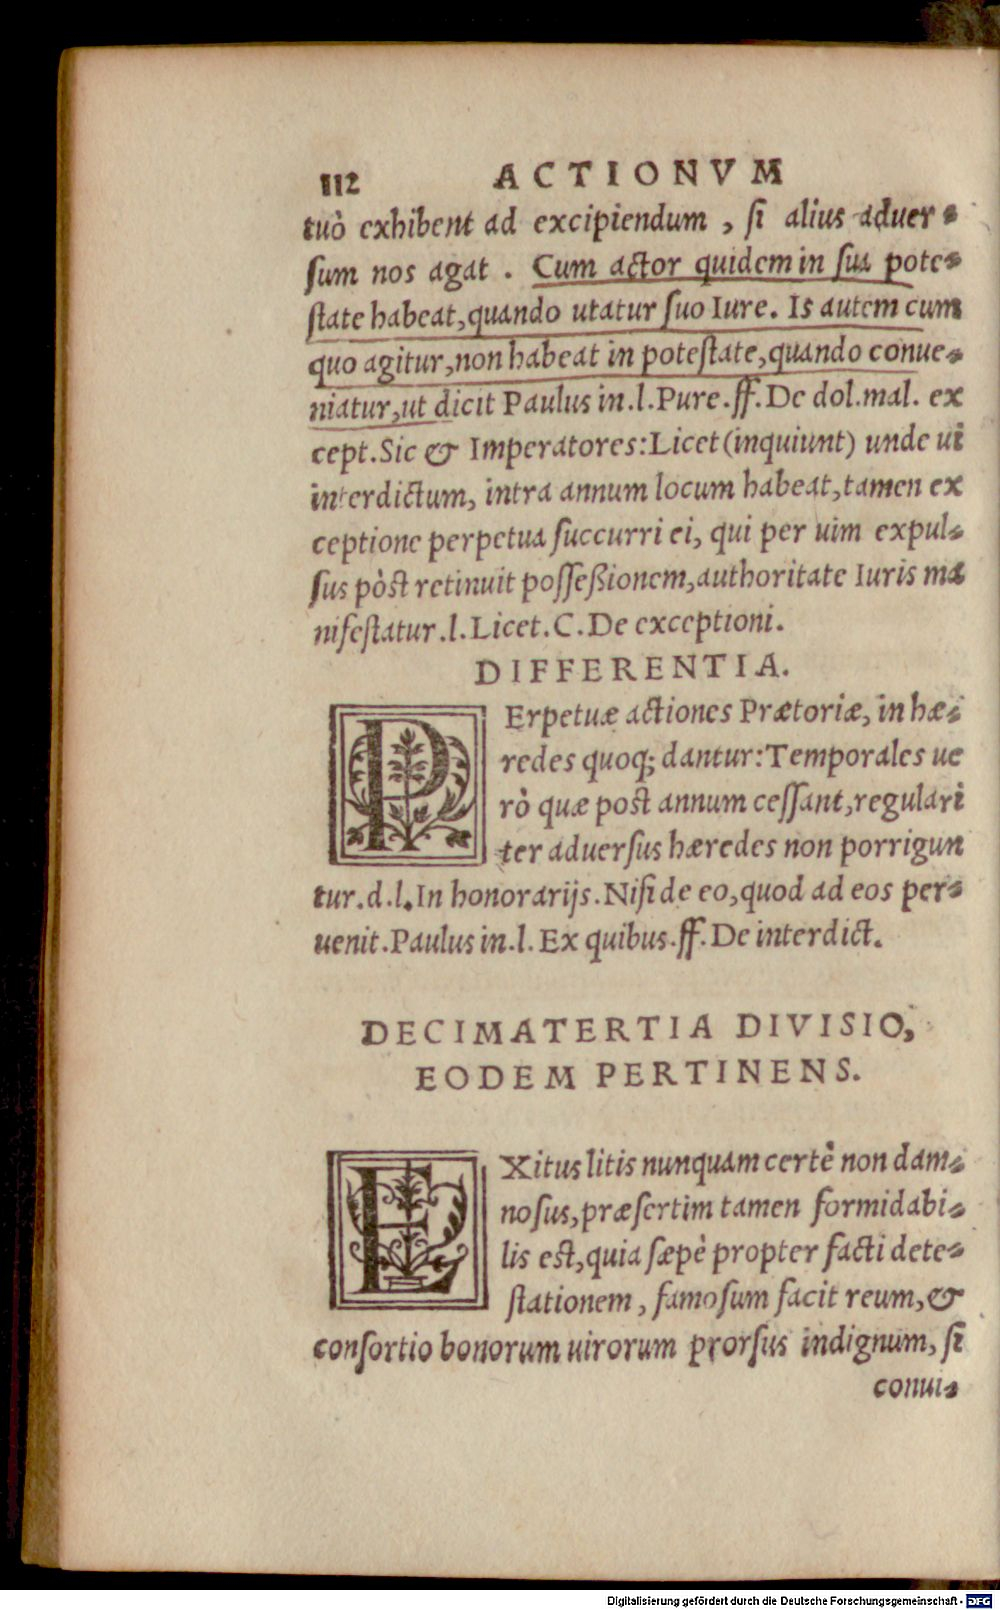 112 ACTIONVM
tuò exhibent ad excipiendum , ſi alius aduer-
ſum nos agat . Cum actor quidem in ſua pote-
ſtate habeat, quando utatur ſuo Iure. Is autem cum
quo agitur, non habeat in poteſtate, quando conue-
niatur, ut dicit Paulus in.l.Pure.ff.De dol.mal. ex
cept.Sic & Imperatores:Licet(inquiunt) unde ui
interdictum, intra annum locum habeat, tamen ex
ceptione perpetua ſuccurri ei, qui per uim expul-
ſus pòst retinuit poſſeßionem, authoritate Iuris ma
nifeſtatur.l.Licet.C.De exceptioni.
DIFFERENTIA.
PErpetuæ actiones Prætoriæ, in hæ-
redes quoq; dantur:Temporales ue
rò quæ post annum ceſſant, regulari
ter aduerſus hæredes non porrigun
tur.d.l.In honorarijs.Niſi de eo, quod ad eos per-
uenit.Paulus in.l.Ex quibus.ff.De interdict.
DECIMATERTIA DIVISIO,
EODEM PERTINENS.
EXitus litis nunquam certè non dam-
noſus, præſertim tamen formidabi-
lis est, quia ſæpè propter facti dete-
ſtationem, famoſum facit reum, &
conſortio bonorum uirorum prorſus indignum, ſi
conui-
Digitalisierung gefördert durch die Deutsche Forschungsgemeinschaft - DFG